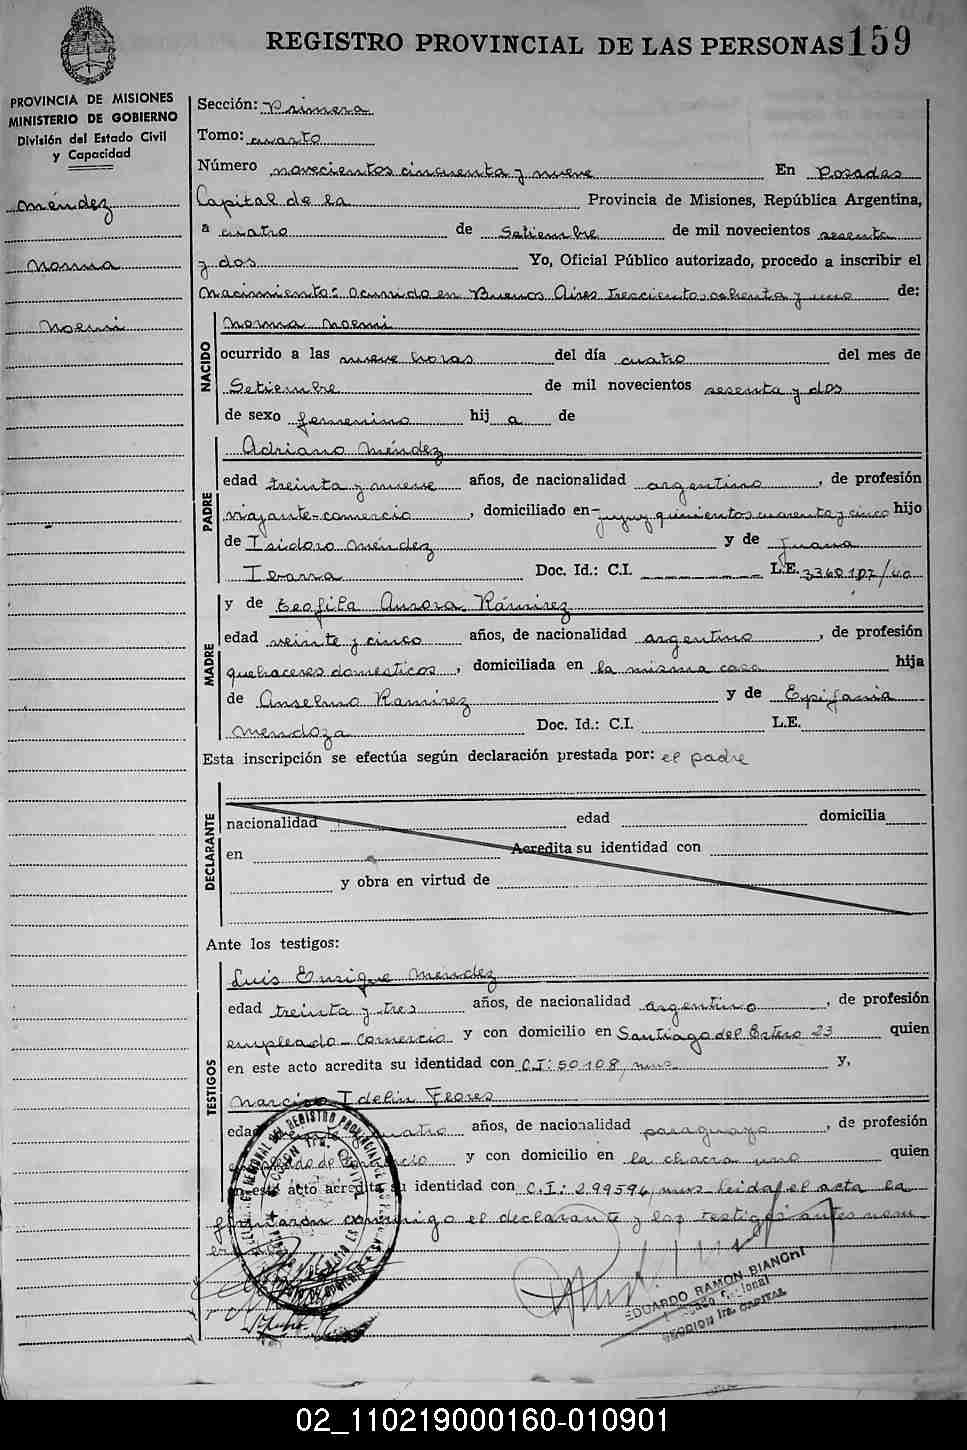 REGISTRO PROVINCIAL DE LAS PERSONAS 159
PROVINCIA DE MISIONES
MINISTERIO DE GOBIERNO
División del Estado Civil
y Capacidad
Méndez
Norma
Noemi
Sección: Primera
Tomo: cuarto
Número novecientos cincuenta y nueve En Posadas
Capital de la Provincia de Misiones, República Argentina,
a cuatro de Setiembre de mil novecientos sesenta
y dos Yo, Oficial Público autorizado, procedo a inscribir el
nacimiento: ocurrido en Buenos Aires trecientos ochenta y uno de:
NACIDO
Norma Noemi
ocurrido a las nueve horas del día cuatro del mes de
Setiembre de mil novecientos sesenta y dos
de sexo femenino hij a de
PADRE
Adriano Méndez
edad treinta y nueve años, de nacionalidad argentino, de profesión
viajante-comercio, domiciliado en- jujuy quinientos cuarenta y cinco hijo
de Isidoro Méndez y de Juana
Ibarra Doc. Id.: C.I. L.E. 3360107/40
MADRE
y de Teofila Aurora Rámirez
edad veinte y cinco años, de nacionalidad argentino, de profesión
quehaceres domesticos, domiciliada en la misma casa hija
de Anselmo Ramirez y de Epifania
Mendoza Doc. Id.: C.I. L.E.
Esta inscripción se efectúa según declaración prestada por: el padre
DECLARANTE
nacionalidad edad domicilia
en Acredita su identidad con
y obra en virtud de
Ante los testigos:
TESTIGOS
Luis Enrique Méndez
edad treinta y tres años, de nacionalidad argentino, de profesión
empleado-Comercio y con domicilio en Santiago del Estero 23 quien
en este acto acredita su identidad con C.I: 50108, mns. y,
Narciso Idelin Flores
edad cuatro años, de nacionalidad paraguayo, de profesión
y con domicilio en la chacra uno quien
en este acto acredita su identidad con C.I: 299594, mns. leida el acta la
firmaron conmigo el declarante y los testigos antes nom
EDUARDO RAMON BIANCHI
SECCION 1ra. CAPITAL
02_110219000160-010901